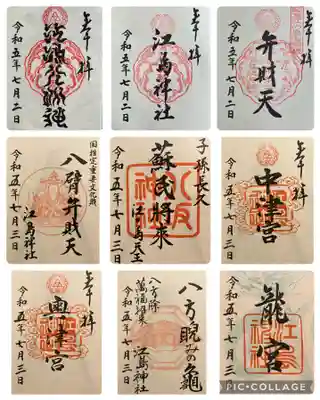 奉拝
令和五年七月二日
奉拝
江島神社
令和五年七月二日
奉拝
弁財天
令和五年七月二日
国指定重要文化財
八臂弁財天
江島神社
令和五年七月三日
子孫長久
蘇民将来
江島天王
令和五年七月三日
奉拝
中津宮
令和五年七月三日
奉拝
奥津宮
令和五年七月三日
八方睨みの亀
八方除
萬福招来
江島神社
令和五年七月三日
龍宮
PIC•COLLAGE